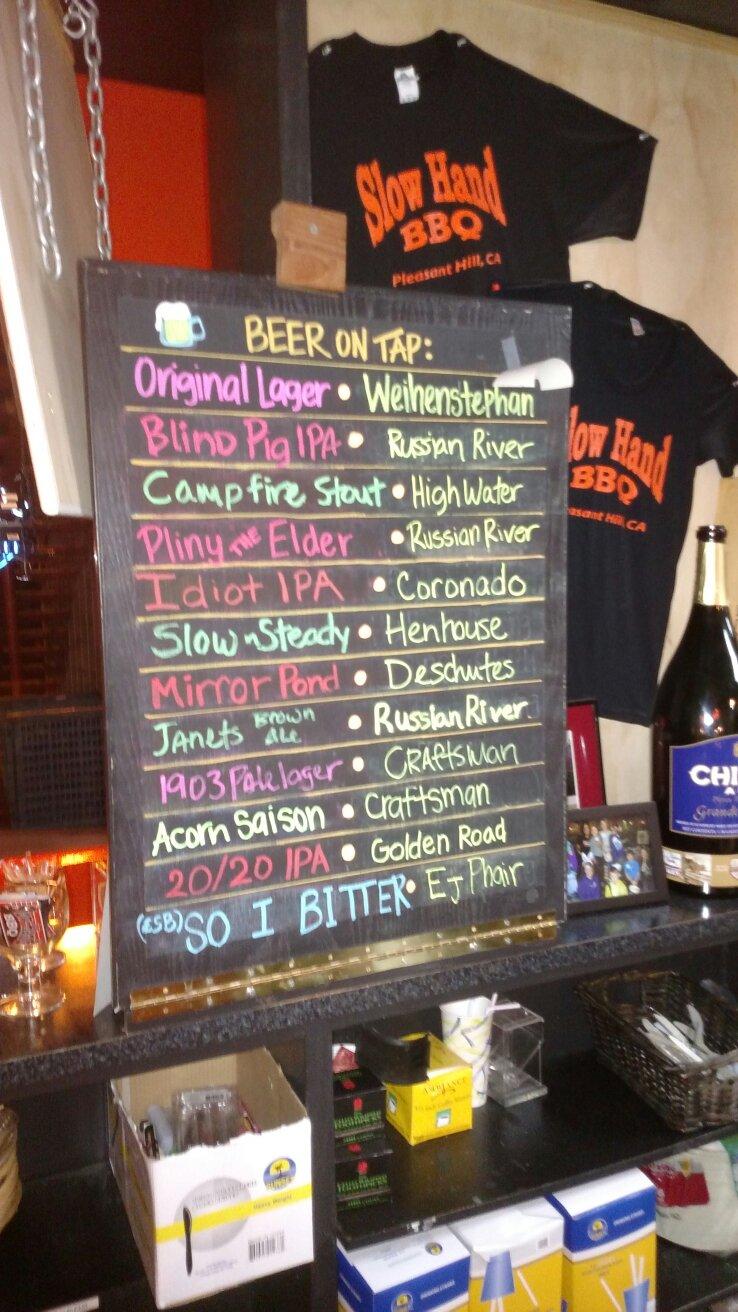 Slow Hand
BBQ
Pleasant Hill, CA
BEER ON TAP:
Original Lager • Weihenstephan
Blind Pig IPA • Russian River
Campfire Stout • High Water
Pliny THE Elder • Russian River
Idiot IPA • Coronado
Slow n Steady • Henhouse
Mirror Pond • Deschutes
Janets Brown Ale • Russian River
1903 Pale lager • CRAFTSMAN
Acorn Saison • Craftsman
20/20 IPA • Golden Road
(ESB) SO I BITTER • EJ Phair
low Hand
BBQ
asant Hill, CA
CHI
Grande